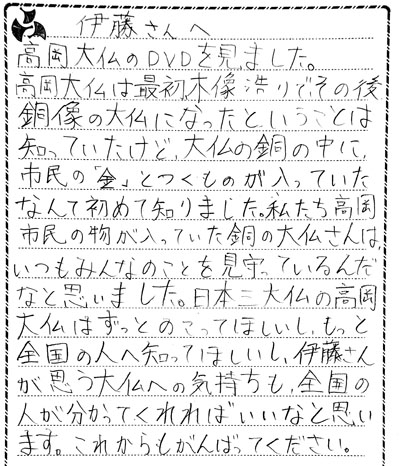 伊藤さんへ
高岡大仏のDVDを見ました。
高岡大仏は最初木像造りでその後
銅像の大仏になったということは
知っていたけど、大仏の銅の中に、
市民の「金」とつくものが入っていた
なんて初めて知りました。私たち高岡
市民の物が入っていた銅の大仏さんは、
いつもみんなのことを見守っているんだ
なと思いました。日本三大仏の高岡
大仏はずっとのこってほしいし、もっと
全国の人へ知ってほしいし、伊藤さん
が思う大仏への気持ちも、全国の
人が分かってくれればいいなと思い
ます。これからもがんばってください。